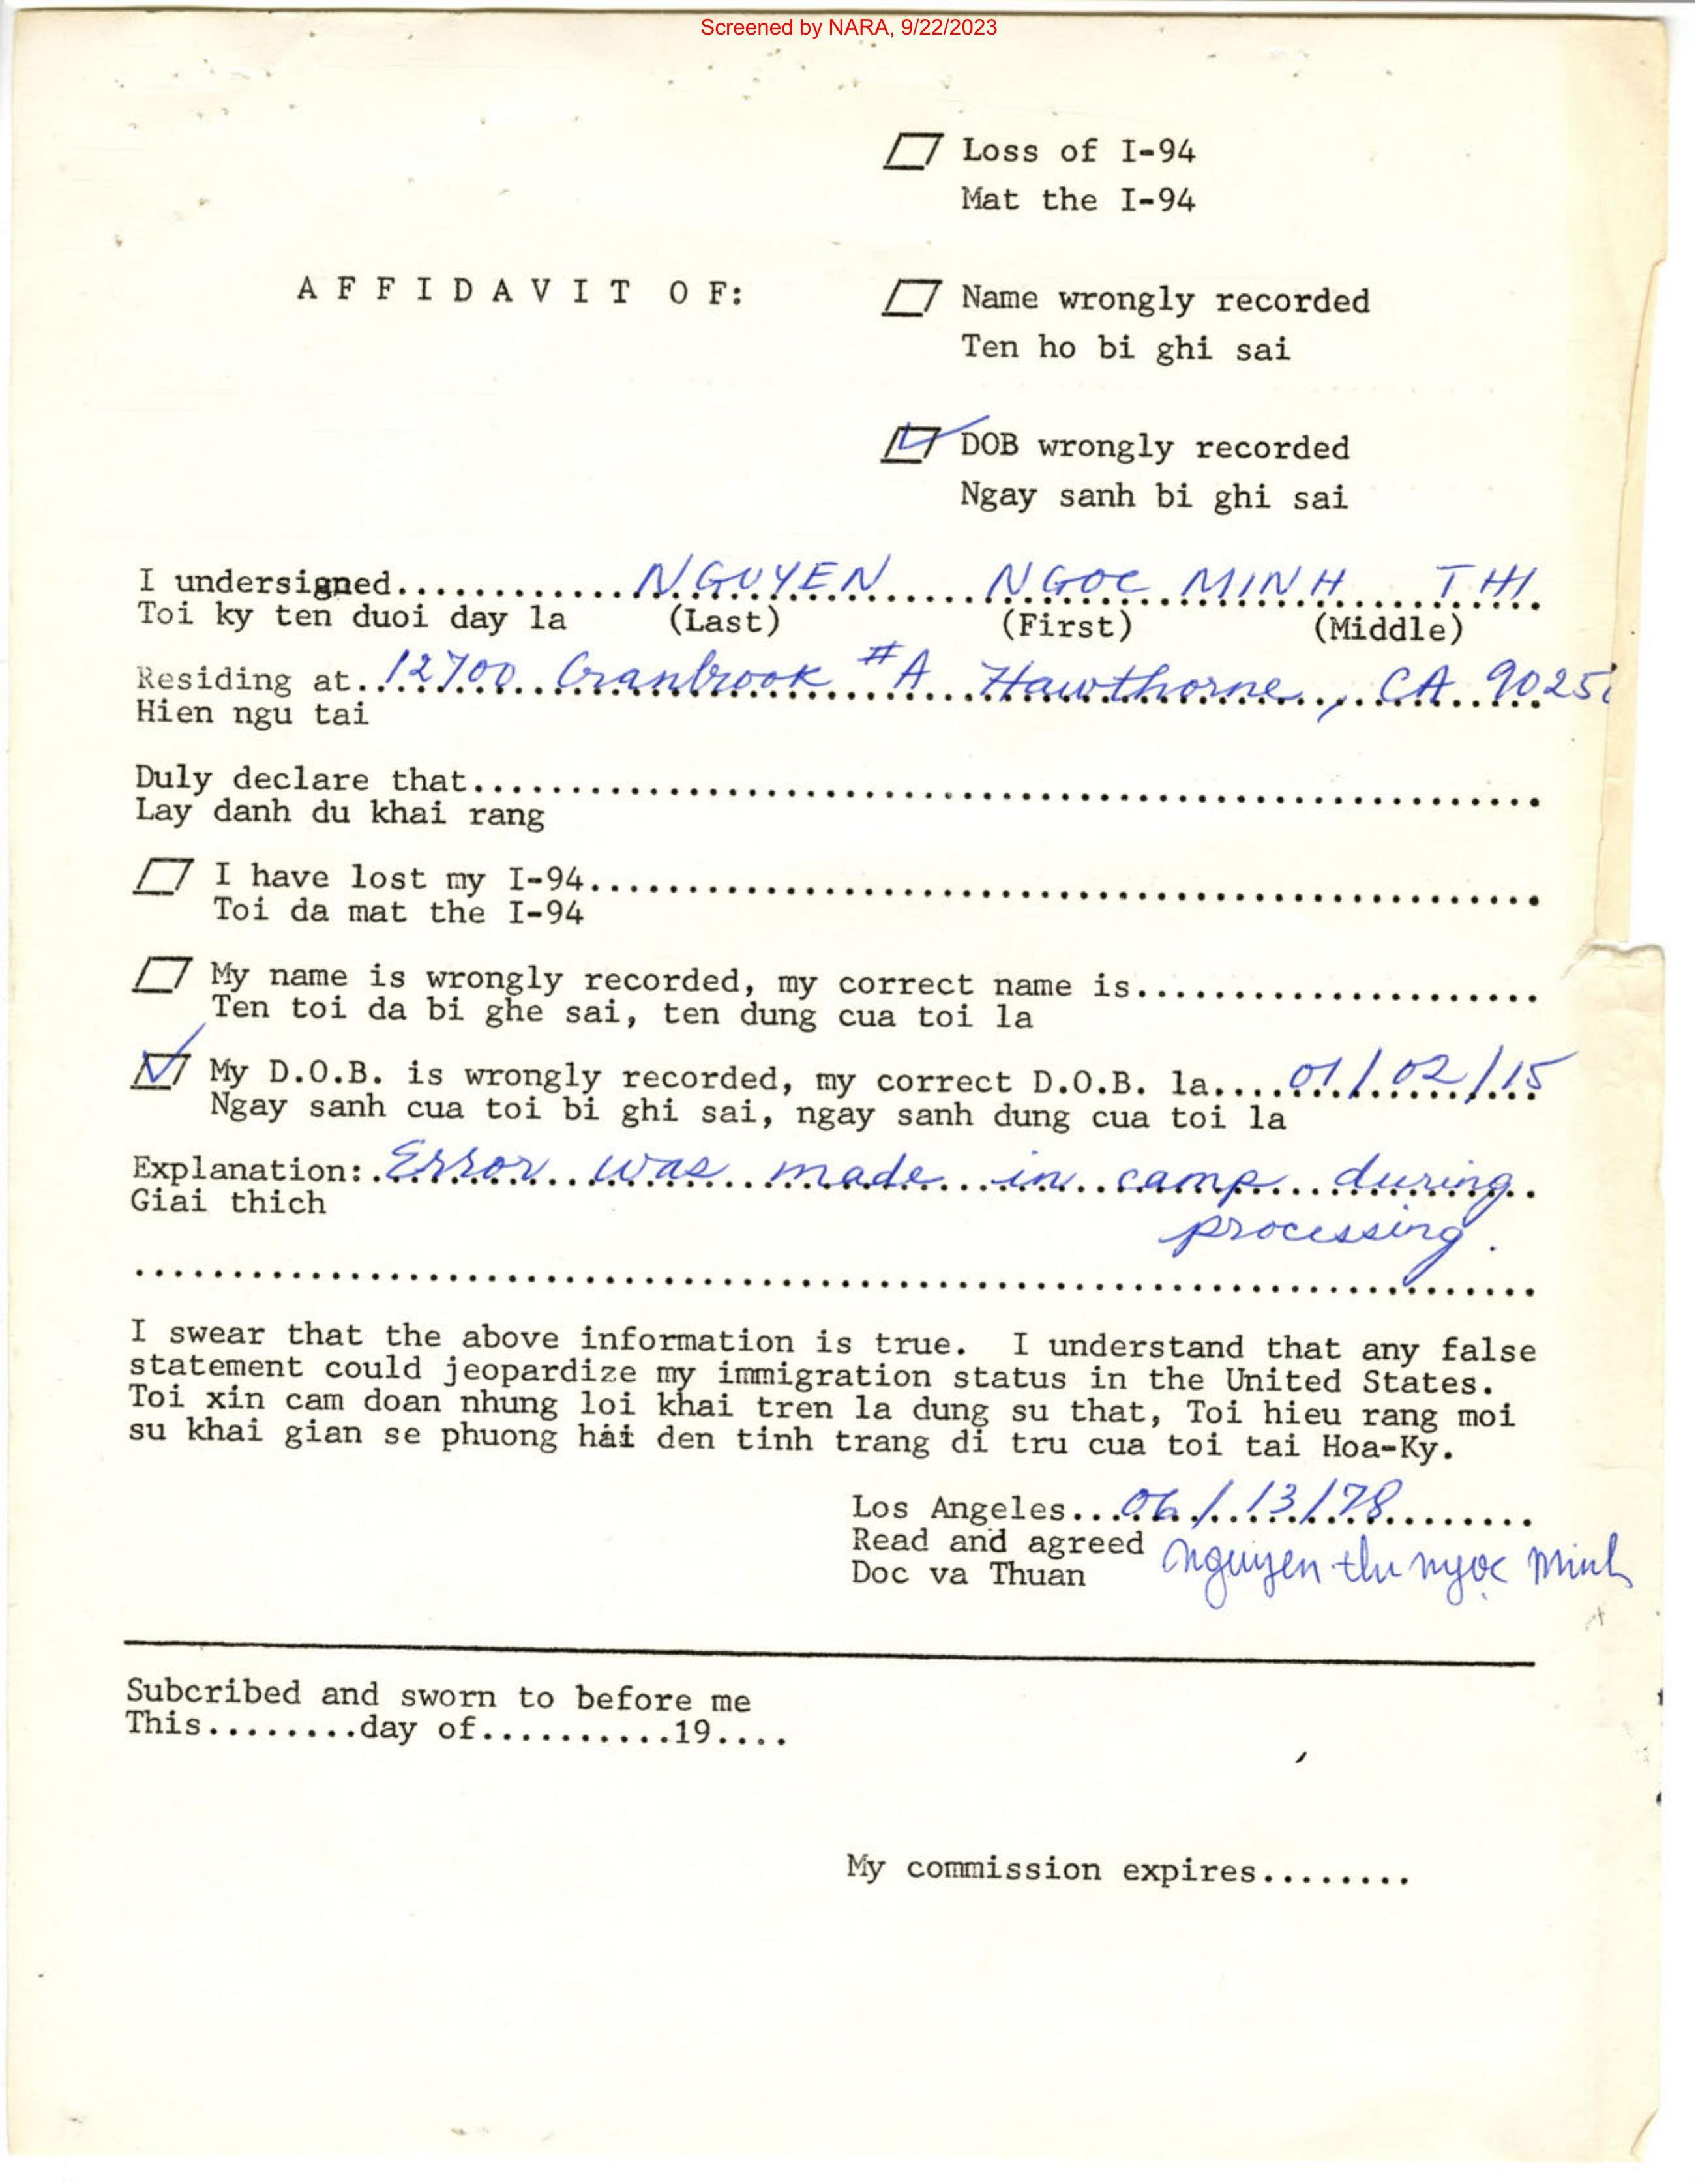 Screened by NARA, 9/22/2023
Loss of I-94
Mat the I-94
AFFIDAVIT OF:
Name wrongly recorded
Ten ho bi ghi sai
DOB wrongly recorded
Ngay sanh bi ghi sai
I undersigned.............NGUYEN NGOC MINH THI
Toi ky ten duoi day la (Last) (First) (Middle)
Residing at..12700 Cranbrook #A Hawthorne, CA
Hien ngu tai
Duly declare that..........
Lay danh du khai rang
I have lost my I-94..........
Toi da mat the I-94
My name is wrongly recorded, my correct name is..........
Ten toi da bi ghe sai, ten dung cua toi la
My D.O.B. is wrongly recorded, my correct D.O.B. la....01/02/15
Ngay sanh cua toi bi ghi sai, ngay sanh dung cua toi la
Explanation: Error was made in camp during
Giai thich
processing.
I swear that the above information is true. I understand that any false
statement could jeopardize my immigration status in the United States.
Toi xin cam doan nhung loi khai tren la dung su that, Toi hieu rang moi
su khai gian se phuong hai den tinh trang di tru cua toi tai Hoa-Ky.
Los Angeles...06/13/78
Read and agreed
Doc va Thuan nguyen thi ngọc Minh
Subcribed and sworn to before me
This........day of..........19....
My commission expires........